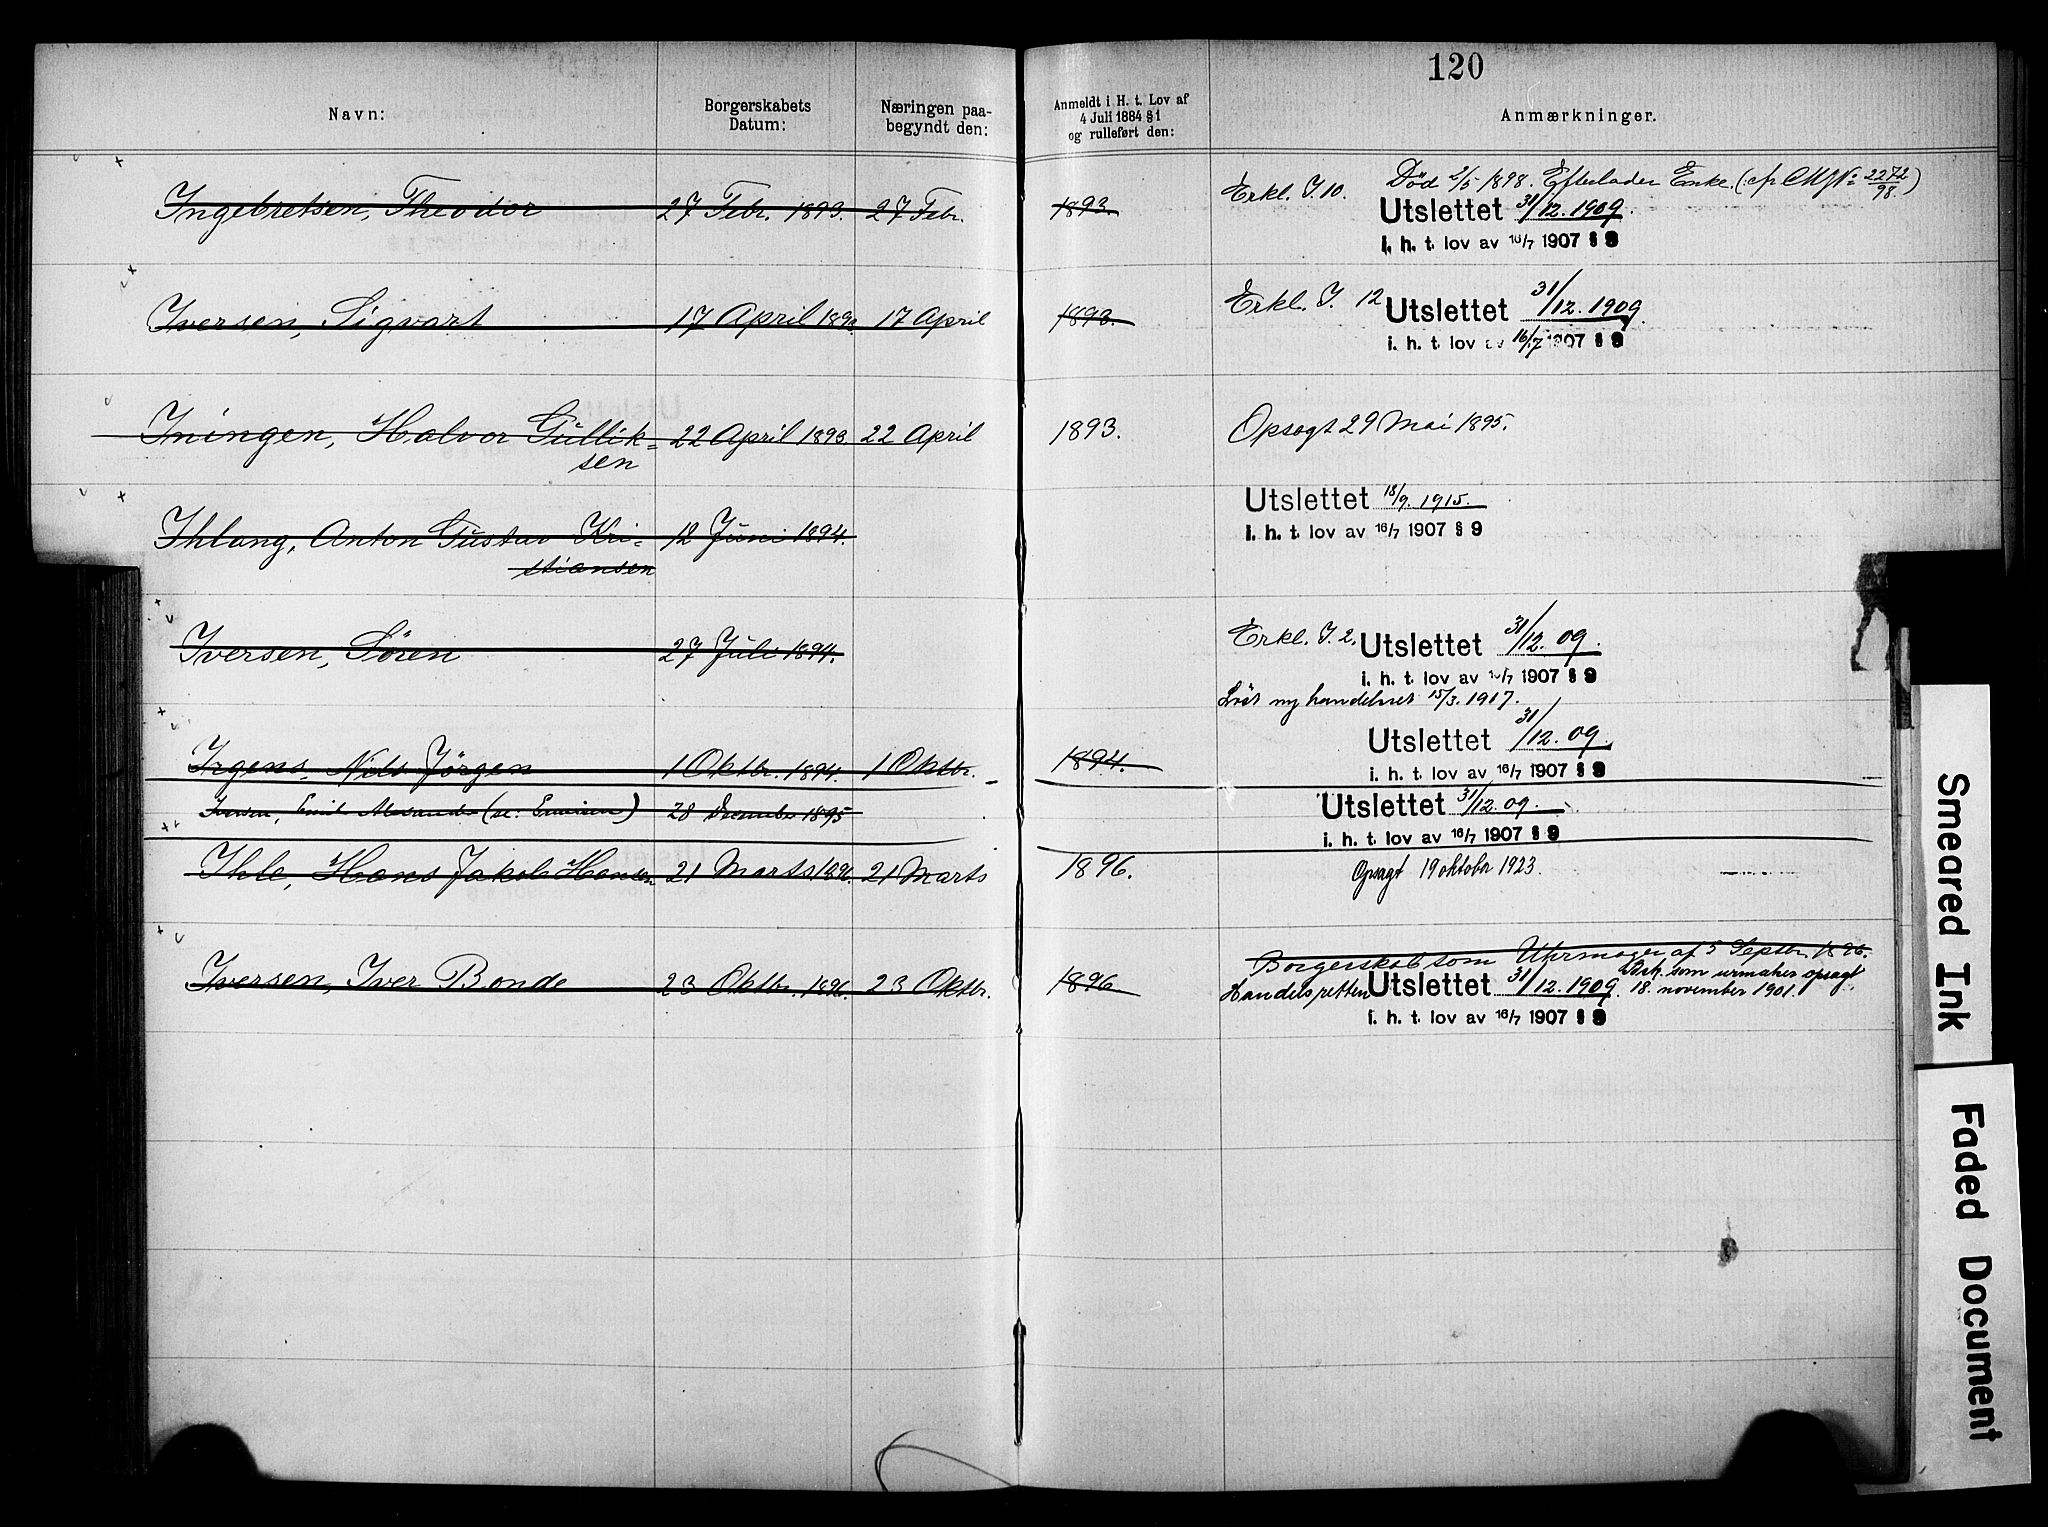 120
Navn:
Borgerskabets Datum:
Næringen paa-begyndt den:
Anmeldt i H. t. Lov af 4 Juli 1884 §1 og rulleført den:
Anmærkninger.
Ingebretsen, Theodor 27 Febr. 1893. 27 Febr. 1893. Erkl. I. 10. Død 2/5 1898. Efterlader Enke.
2272/98.
Utslettet 31/12. 1909.
i. h. t. lov av 16/7 1907 § 9
Iversen, Sigvart 17 April 1893 17 April 1893. Erkl. I. 12 Utslettet 31/12. 1909.
i. h. t. lov av 16/7 1907 § 9
Iningen, Halvor Gullik=
sen
22 April 1893. 22 April 1893. Opsagt 29 Mai 1895.
Utslettet 18/9. 1915.
i. h. t. lov av 16/7 1907 § 9
Ihlang, Anton Gustav Kri-
stiansen
12 Juni 1894.
Iversen, Sören 27 Juli 1894. Erkl. I. 2. Utslettet 31/12. 09.
i. h. t. lov av 16/7 1907 § 9
Löst ny handelsret 15/3. 1917.
Irgens, Niels Jörgen 1 Oktbr. 1894. 1 Oktbr. 1894. Utslettet 31/12. 09.
i. h. t. lov av 16/7 1907 § 9
Iversen, Emil Alexander 28 December 1895 Utslettet 31/12. 09.
i. h. t. lov av 16/7 1907 § 9
Ihle, Hans Jakob Hansen 21 Marts 1896. 21 Marts 1896. Opsagt 19 oktober 1923.
Iversen, Iver Bonde 23 Oktbr. 1896. 23 Oktbr. 1896. Borgerskab som Uhrmager af 5 Septbr. 1896.
Bsk. som urmaker opsagt
18. november 1901.
Handelsretten Utslettet 31/12. 1909.
i. h. t. lov av 16/7 1907 § 9
Smeared Ink
Faded Document